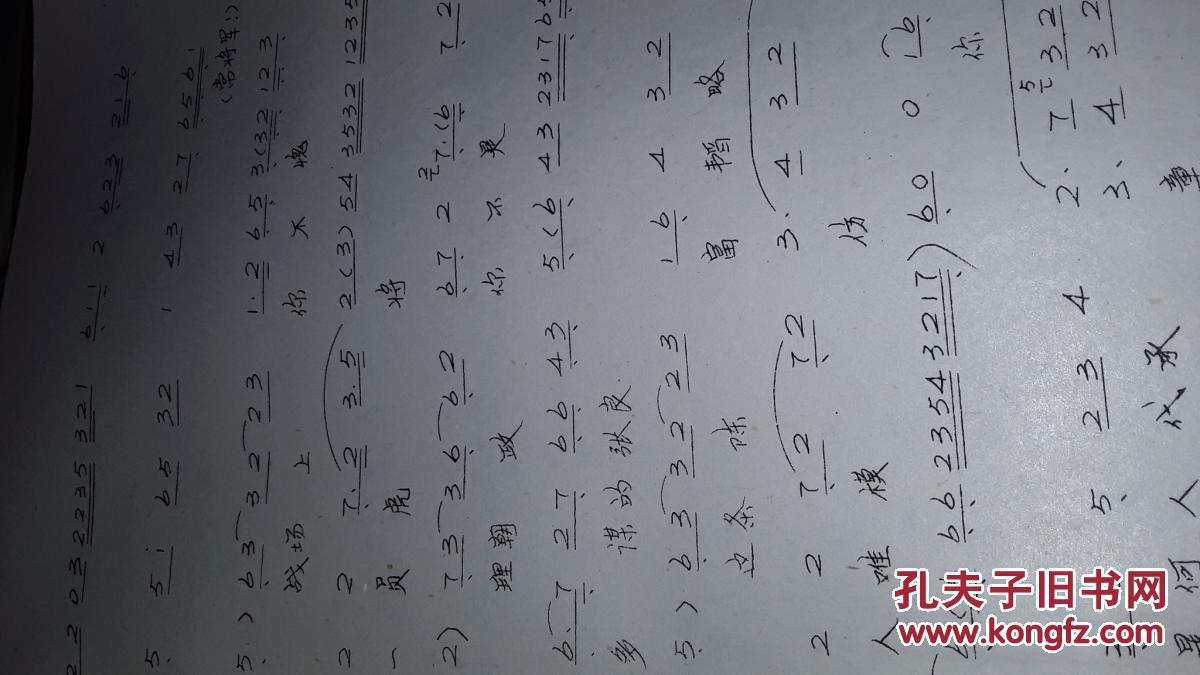 2 2 0 3 2235 321 6 1 1 2 623 216
5 5 i 65 32 1 43 27 656
(常将军:)
5 ) 63 32 23 1·2 65 3(32 123
战场 上 你 不 愧
2 2 7·2 3·5 2(3)54 3532 1235
一 员 虎 将
2) 73 36 62 67 2 7·(6 72
理朝 政 你 不 是
6·7 27 66 43 5(6 43 2317
多 谋的张良
5 ) 63 32 23 16 4 32
这条 陈 富 韬 略
2 2 72 72 3· 4 32
人 唯 模 仿
66 2354 3217 ) 60 0 16
你
5 23 4 2· 7 32
3· 4 32
是 何 人 代 承
孔夫子旧书网
www.kongfz.com